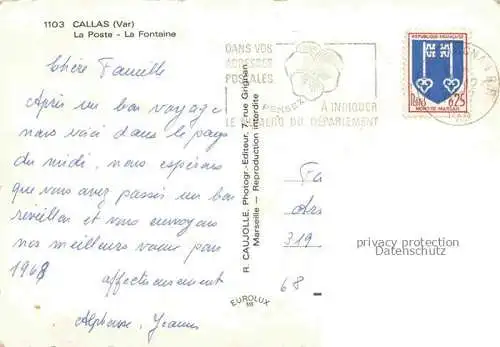 1103 CALLAS (Var)
La Poste - La Fontaine
Chère Famille
Après un bon voyage
nous voici dans le pays
du midi, nous espérons
que vous avez passés un bon
réveillon et vous envoyons
nos meilleurs vœux pour
1968
affectueusement
Alphonse, Jeanne
R. CAUJOLLE, Photogr.-Editeur, 7, rue Grignan
Marseille - Reproduction interdite
EUROLUX
DANS VOS
ADRESSES
POSTALES
PENSEZ
A INDIQUER
LE NUMERO DU DEPARTEMENT
REPUBLIQUE FRANÇAISE
POSTES
0,25
MONT-DE-MARSAN
319
68
privacy protection
Datenschutz